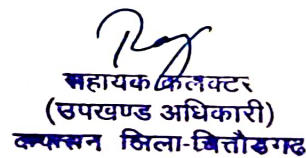 सहायक कलक्टर
(उपखण्ड अधिकारी)
जिला-चित्तौडगढ